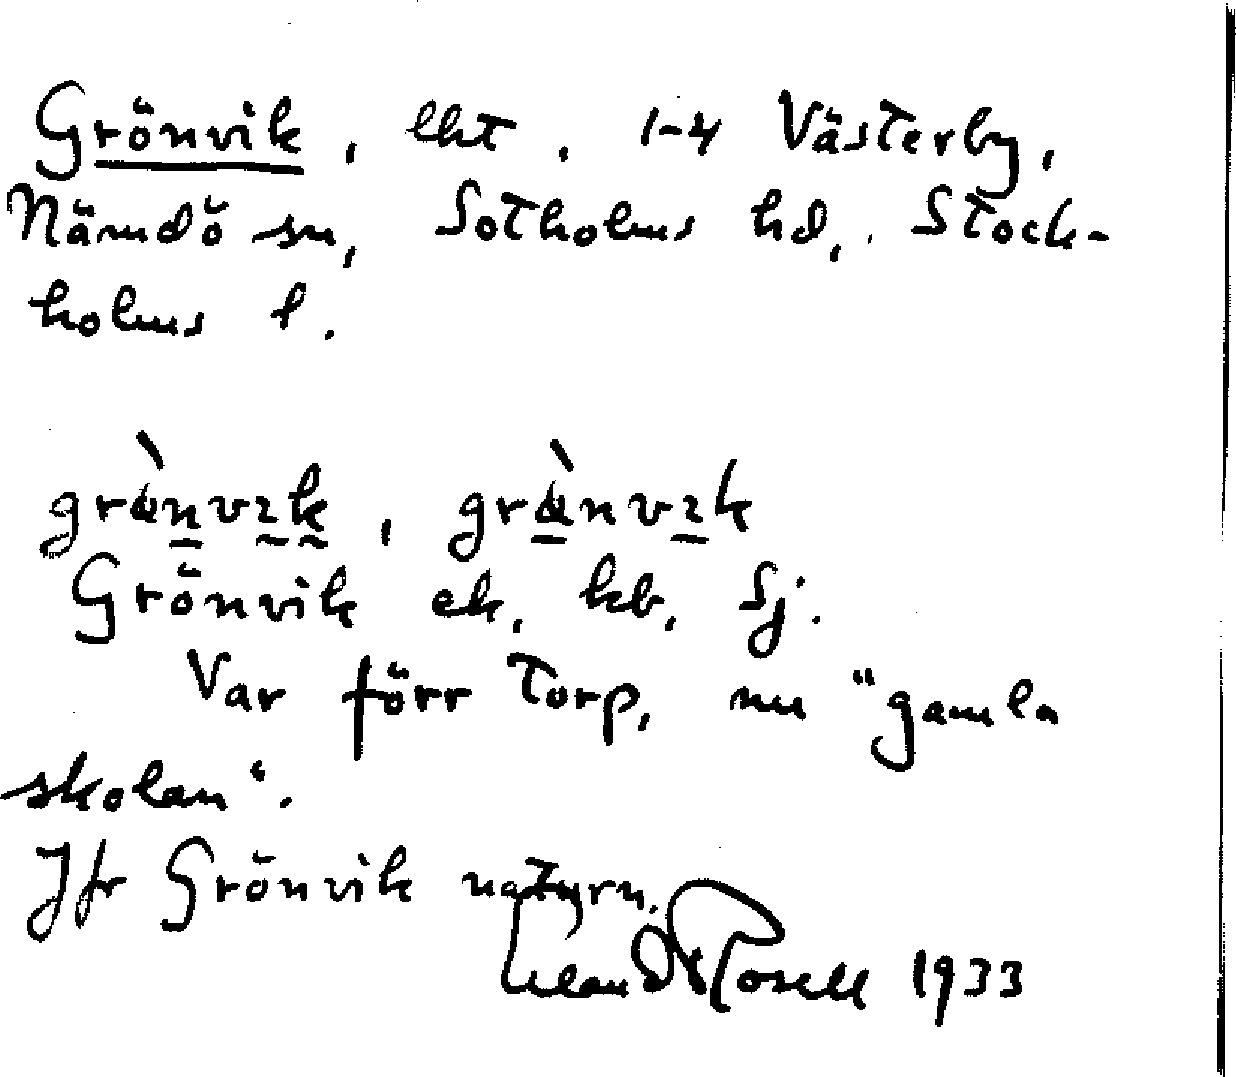 Grönvik, lht, 1-4 Västerby,
Nämdö sn, Sotholms hd, Stock-
holms l.
grὰnvɪk, grὰnvɪk
Grönvik ek, kb, Sj.
Var förr torp, nu "gamla
skolan".
Jfr Grönvik naturn.
Erland Rosell 1933